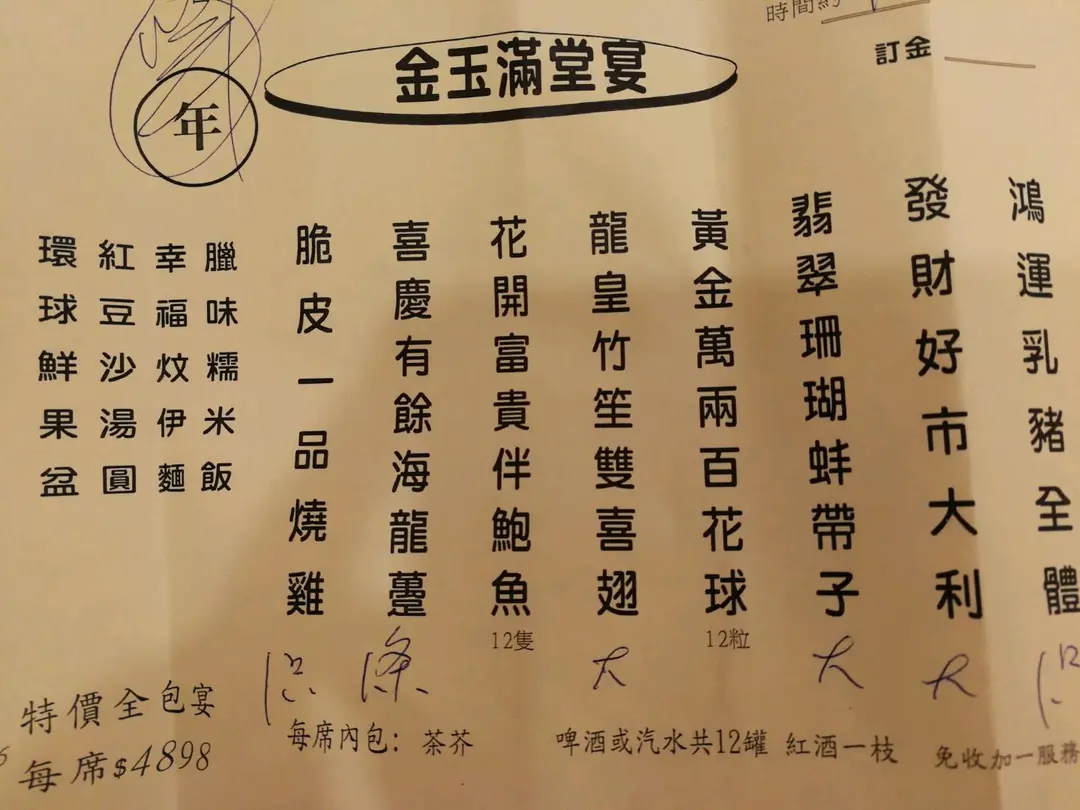 時間約
訂金
金玉滿堂宴
年
鴻運乳豬全體
發財好市大利
翡翠珊瑚蚌帶子
黃金萬兩百花球
12粒
龍皇竹笙雙喜翅
花開富貴伴鮑魚
12隻
喜慶有餘海龍躉
脆皮一品燒雞
臘味糯米飯
幸福炆伊麵
紅豆沙湯圓
環球鮮果盆
條
大
大
大
特價全包宴
每席$4898
每席內包：茶芥
啤酒或汽水共12罐 紅酒一枝
免收加一服務